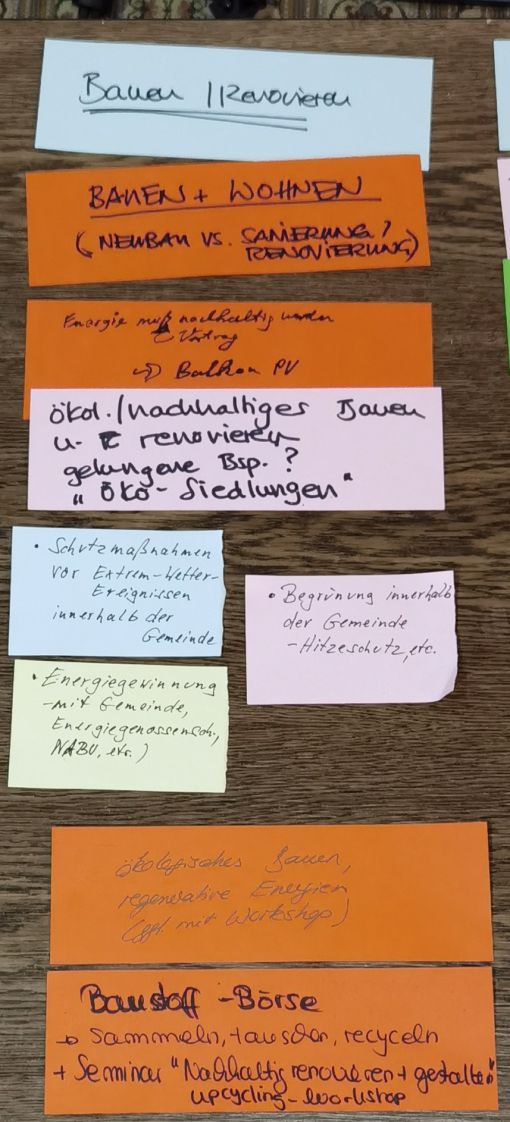 Bauen / Renovieren
BAUEN + WOHNEN
(NEUBAU VS. SANIERUNG /
RENOVIERUNG)
Energie muß nachhaltig werden
Vortrag
→ Balkon PV
ökol./nachhaltiges Bauen
u. renovieren
gelungene Bsp. ?
"Öko-Siedlungen"
• Schutzmaßnahmen
vor Extrem-Wetter-
Ereignissen
innerhalb der
Gemeinde
• Begrünung innerhalb
der Gemeinde
- Hitzeschutz, etc.
• Energiegewinnung
- mit Gemeinde,
Energiegenossensch.,
NABU, etc.)
ökologisches Bauen,
regenerative Energien
(ggf. mit Workshop)
Baustoff-Börse
→ Sammeln, tauschen, recyceln
+ Seminar "Nachhaltig renovieren + gestalten"
upcycling-workshop